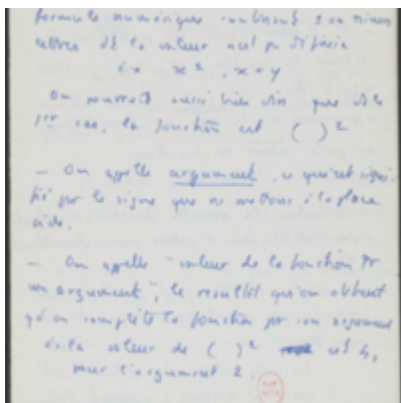 formule numérique
lettres de la valeur
ex x², x + y
On pourrait aussi bien dire que ds le
1er cas, la fonction est ( )²
— On appelle argument, ce qui est signi-
fié par le signe que ns mettons à la place
vide.
— On appelle "valeur de la fonction pr
un argument", le resultat qu'on obtient
qd on complète la fonction par son argument
ex: la valeur de ( )² est 4,
pour l'argument 2.